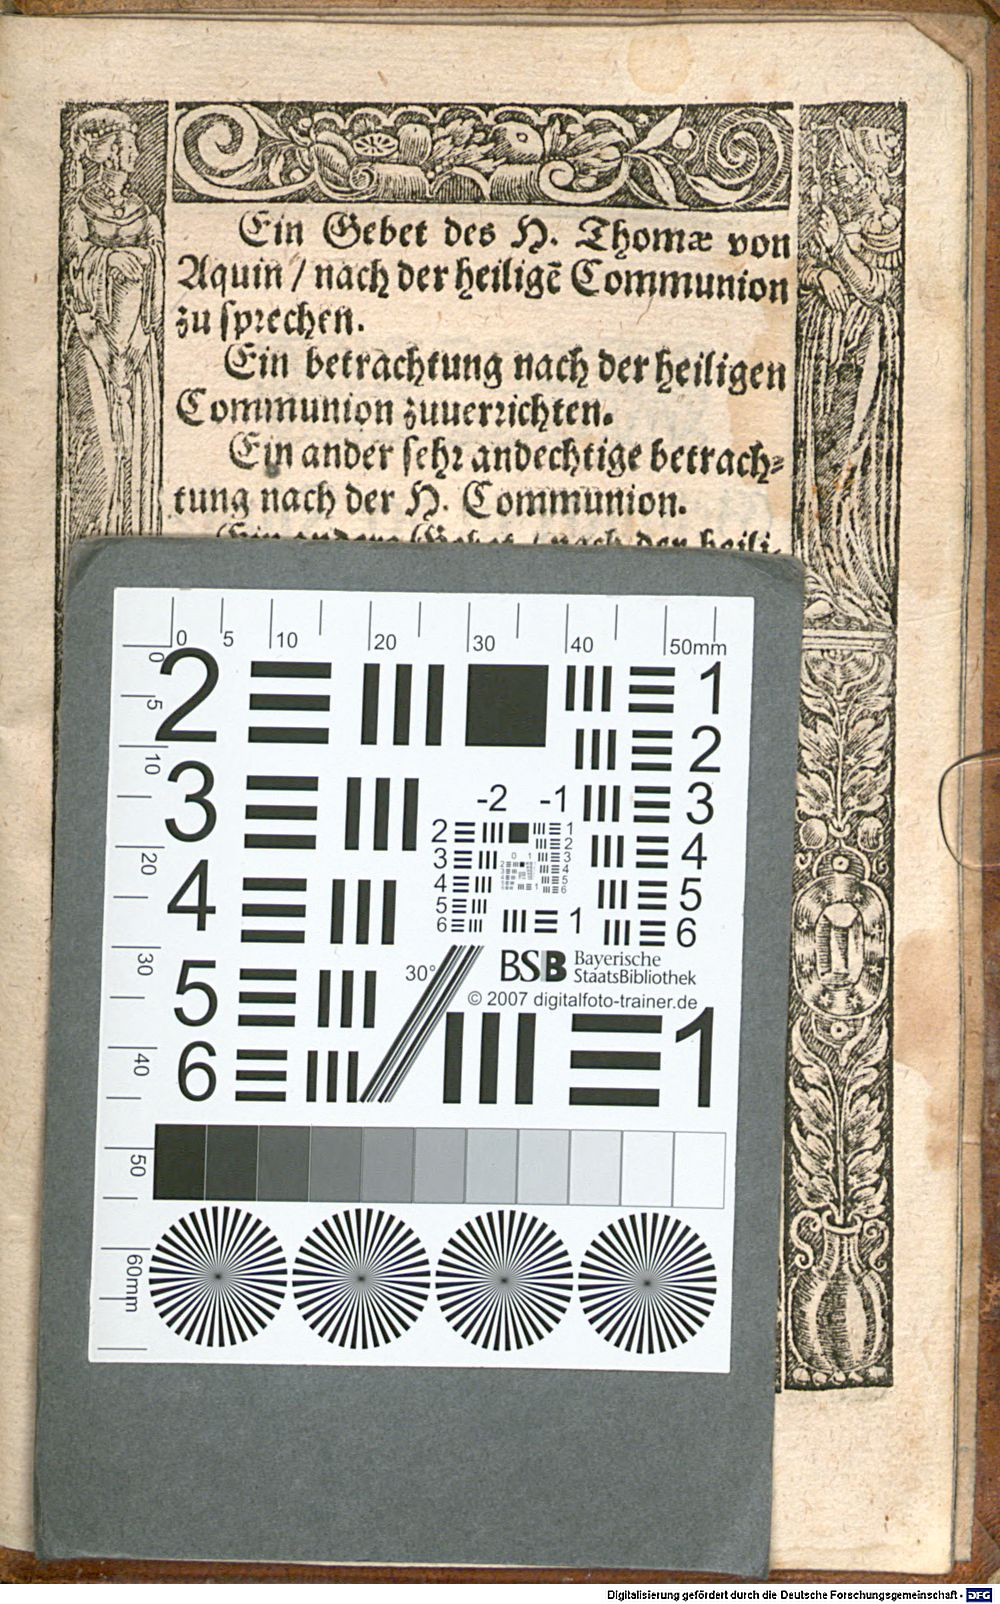 Ein Gebet des H. Thomæ von
Aquin / nach der heiligē Communion
zu sprechen.
Ein betrachtung nach der heiligen
Communion zuuerrichten.
Ein ander sehr andechtige betrach-
tung nach der H. Communion.
Ein andere Gebet / nach der heili-
0 5 10 20 30 40 50mm
0 5 10 20 30 40 50 60mm
2 1
3 2
4 3
5 4
6 5
6
-2 -1
2 1
3 2
4 3
5 4
6 5
6
0 1
1
30°
BSB Bayerische
StaatsBibliothek
© 2007 digitalfoto-trainer.de
1
Digitalisierung gefördert durch die Deutsche Forschungsgemeinschaft - DFG